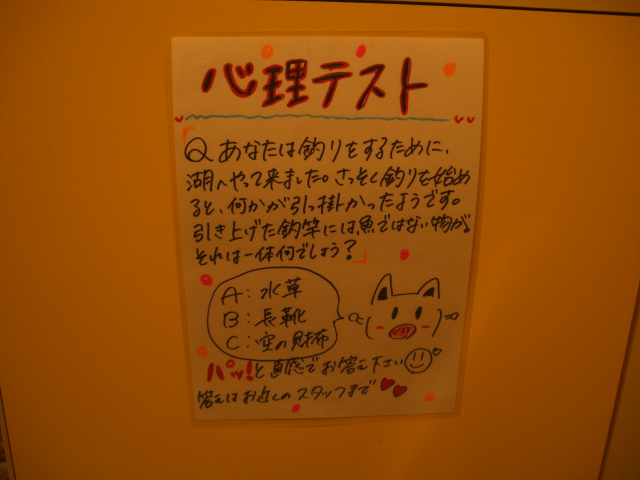 心理テスト
「Qあなたは釣りをするために、
湖へやって来ました。さっそく釣りを始め
ると、何かが引っ掛かったようです。
引き上げた釣竿には、魚ではない物が。
それは一体何でしょう？」
A：水草
B：長靴
C：空の財布
パッ!と直感でお答え下さい
答えはお近くのスタッフまで